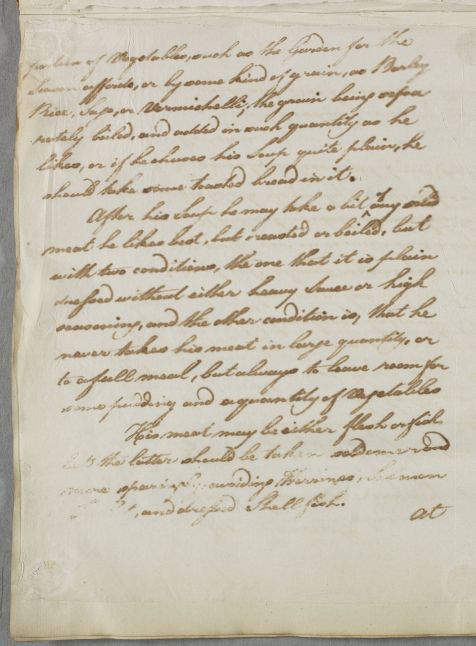 of Vegetables, such as the Garden for the
Season affords, or by some kind of grain, as Barley
Rice, Sago, or Vermichelli; the grain being sepa
rately boiled, and added in such quantity as he
likes, or if he chuses his Soup quite plain, he
should take some toasted bread in it.
After his Soup he may take a bit ^ of any
meat he likes best, but roasted or boiled, but
with two conditions, the one that it is plain
dressed without either heavy Sauce or high
seasoning, and the other condition is, that he
never takes his meat in large quantity, or
to a full meal, but always to leave room for
some pudding and a quantity of Vegetables
His meat may be either flesh or fish
but the latter should be taken seldomer and
more sparingly, avoiding Herrings, Salmon
, and dressed Shell fish.
at